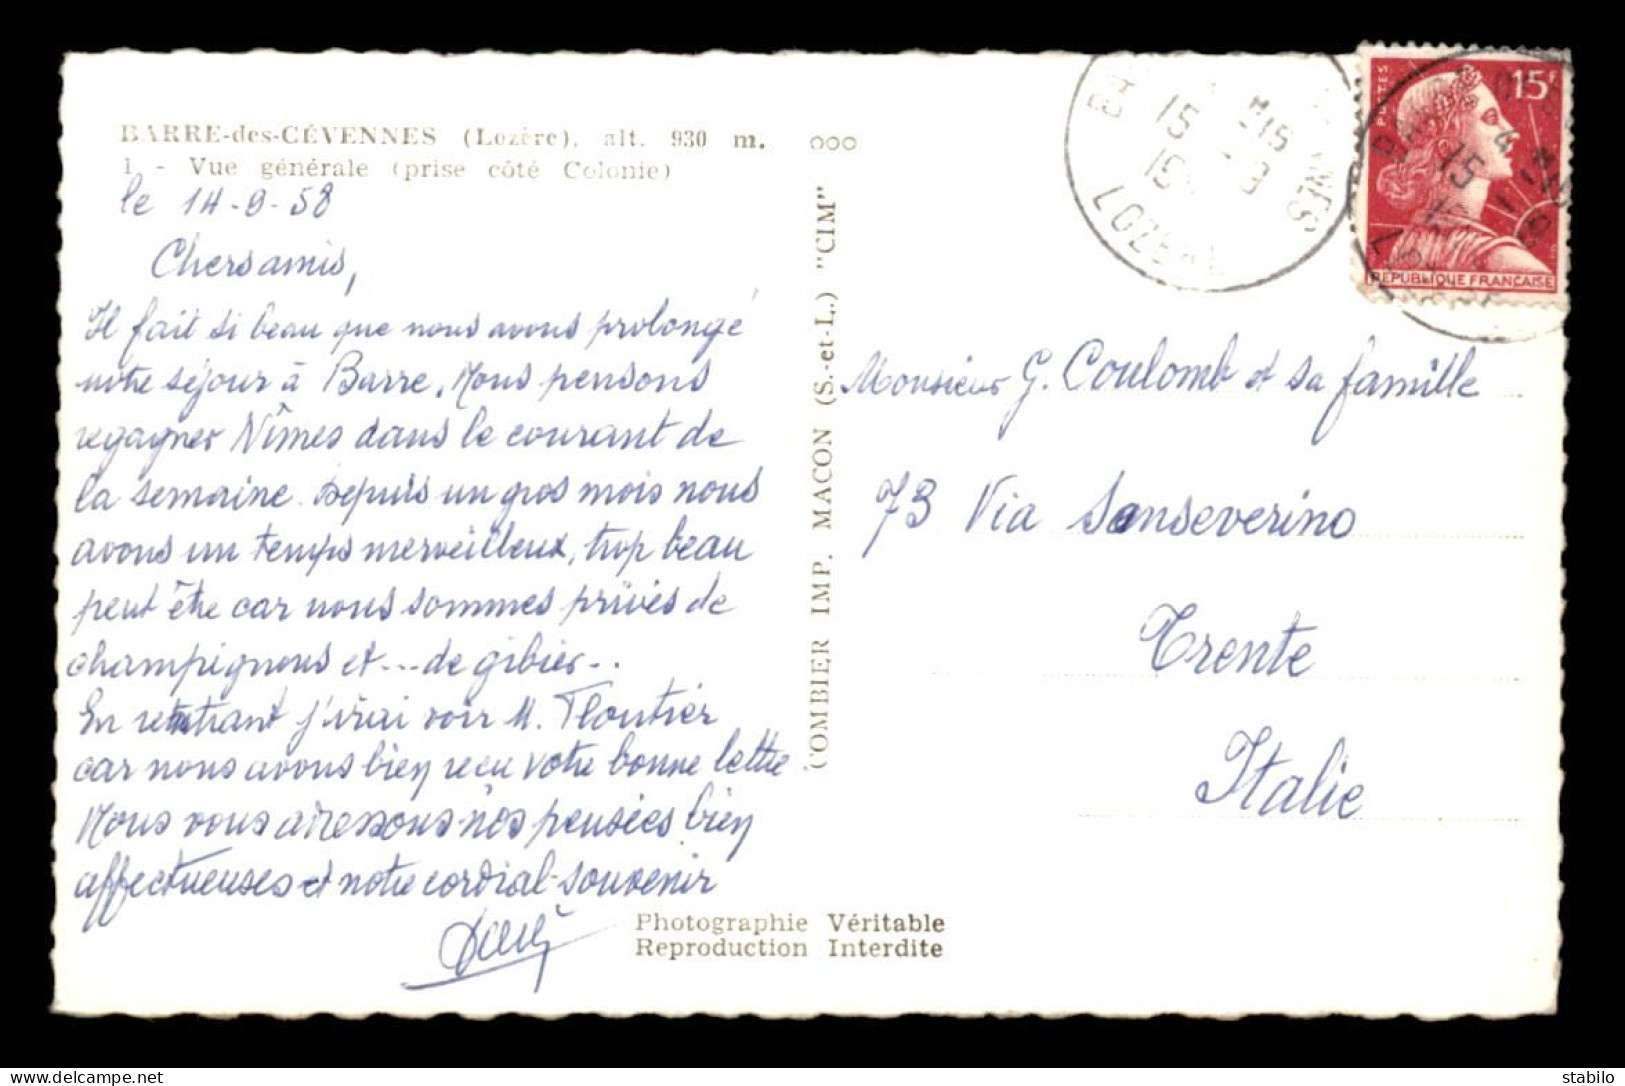 BARRE-des-CÉVENNES (Lozère), alt. 930 m.
1. - Vue générale (prise côté Colonie)
le 14-9-58
Chers amis,
Il fait si beau que nous avons prolongé
notre séjour à Barre. Nous pensons
regagner Nîmes dans le courant de
la semaine. Depuis un gros mois nous
avons un temps merveilleux, trop beau
peut être car nous sommes privés de
champignons et... de gibier..
En rentrant j'irai voir M. Floutier
car nous avons bien reçu votre bonne lettre
Nous vous adressons nos pensées bien
affectueuses et notre cordial souvenir
Photographie Véritable
Reproduction Interdite
COMBIER IMP. MACON (S.-et-L.) "CIM"
LOZERE
POSTES
15F
REPUBLIQUE FRANÇAISE
Monsieur G. Coulomb et sa famille
73 Via Sanseverino
Trente
Italie
stabilo